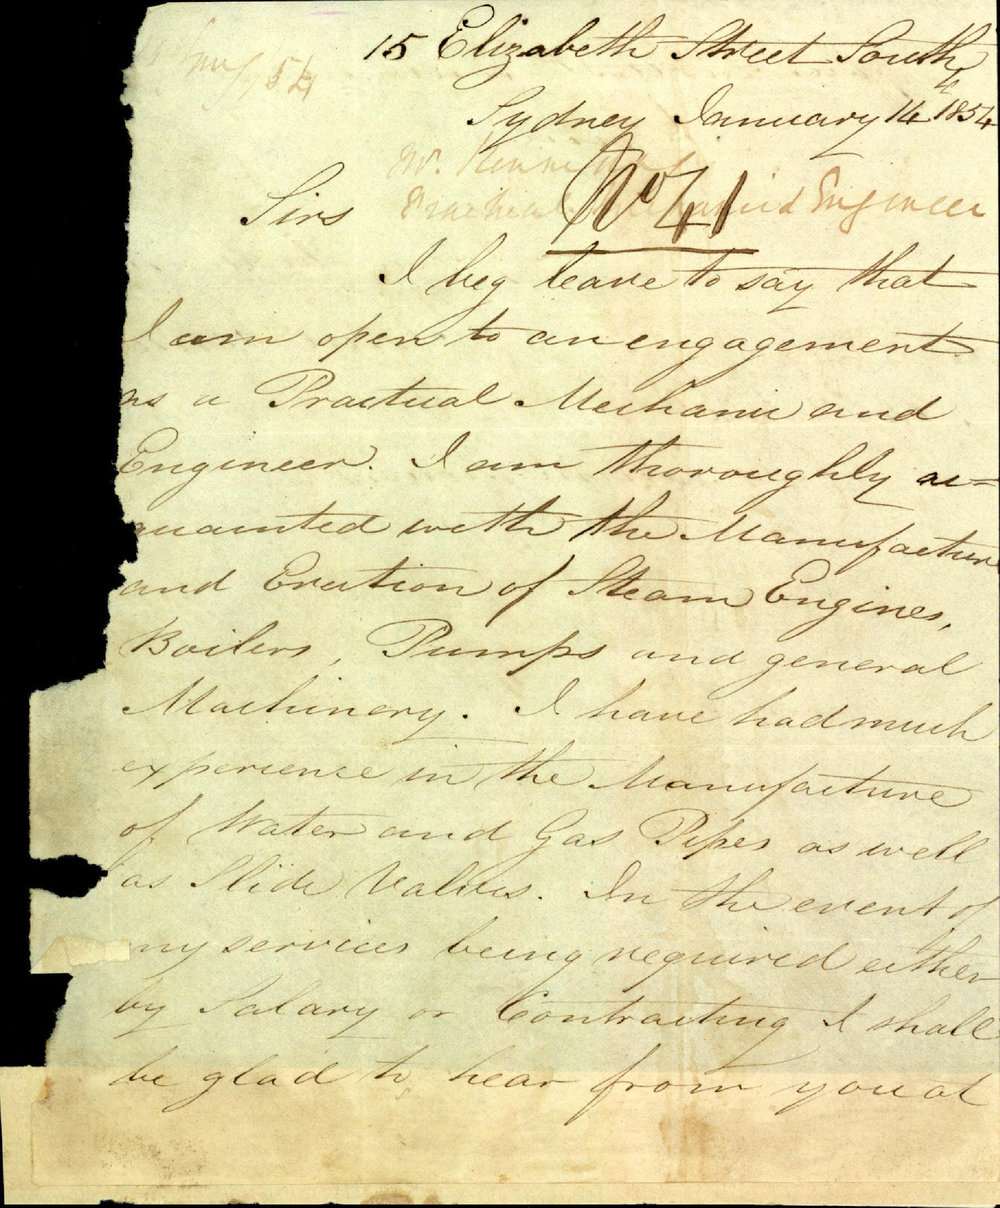 15 Elizabeth Street South
Sydney January 14th 1854
54
Mr.
No 41
Practical Mechanic & Engineer
Sirs
I beg leave to say that
I am open to an engagement
as a Practual Mechanic and
Engineer. I am thoroughly ac=
quainted with the Manufacture
and Erection of Steam Engines,
Boilers, Pumps and general
Machinery. I have had much
experience in the Manufacture
of Water and Gas Pipes as well
as Slide Valves. In the event of
my services being required either
by Salary or Contracting I shall
be glad to hear from you at